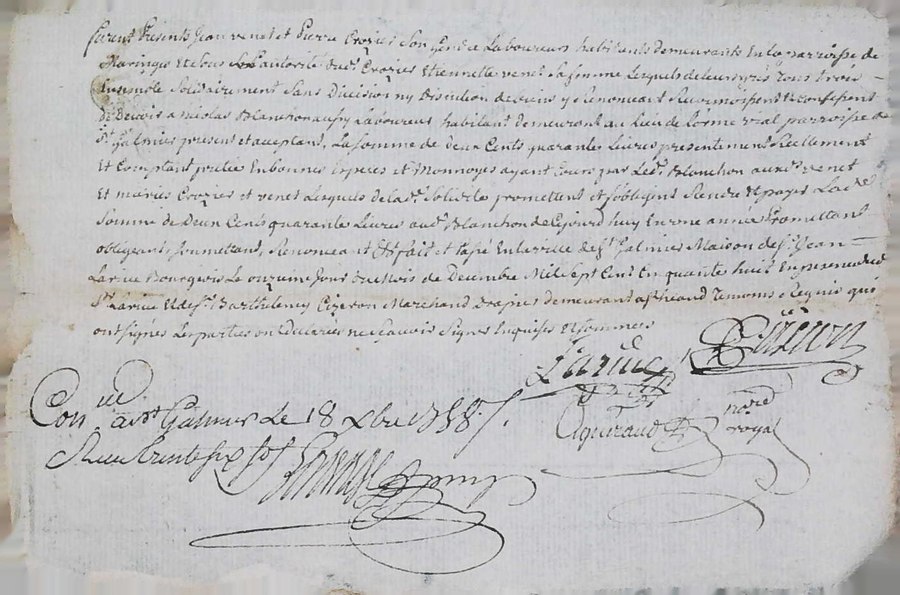 furent Présents Jean venet et Pierre Crozier Son gendre Laboureurs habitants demeurants En la parroisse de
Maringes Et sous L'autorité dud. Crozier Etiennette venet Sa femme Lesquels de leurs grés tous trois
Ensemble Solidairement Sans Division ny Discution de biens y Renonceant Reconnoissent Et confessent
De Devoir a nicolas Blanchon aussy Laboureur habitant demeurant au lieu de Lorme vial parroisse de
St. Galmier present et acceptant, La somme de deux Cents quarante Livres presentement Reellement
Et Comptant pretée En bonnes Especes et Monnoyes ayant Cours par Led. Blanchon auxd. venet
Et mariés Crozier et venet Lesquels de lad. Solidité promettent et s'obligent Rendre Et payer Lad.
Somme de Deux Cents quarante Livres aud. Blanchon de Cejourd'huy En une année Promettant
obligeant, Soumettant, Renonceant &. fait et passé En la ville de St. Galmier Maison de Sr. Jean
Larive Bourgeois Le onzieme Jour du Mois de Decembre Mil Sept Cent Cinquante huit En presence dud.
Sr. Larive Et de Sr. Barthelemy Cizeron Marchand Drapier demeurant Temoins Requis qui
ont signes Les parties ont declarées ne sçavoir Signer Enquises Et sommées
Larive Cizeron
Con.lé a St Galmier Le 18 Xbre 1758.
nore
royal
Reçu trente six sols